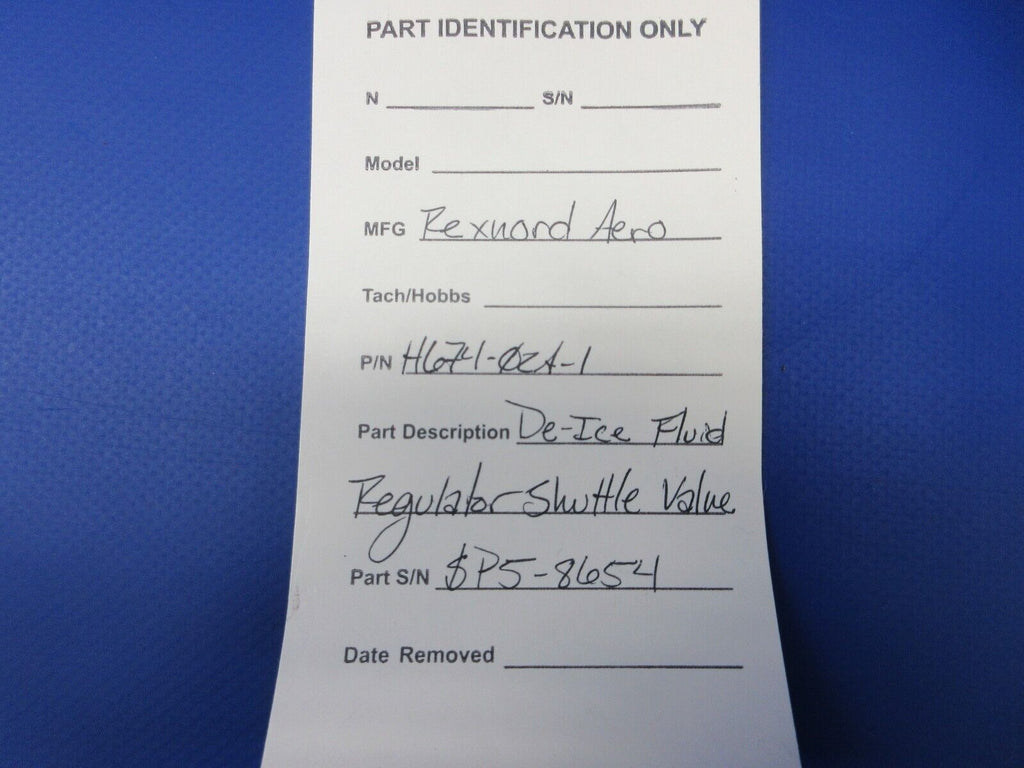 PART IDENTIFICATION ONLY
N S/N
Model
MFG Rexnord Aero
Tach/Hobbs
P/N H674-02A-1
Part Description De-Ice Fluid
Regulator Shuttle Valve
Part S/N $P5-8654
Date Removed